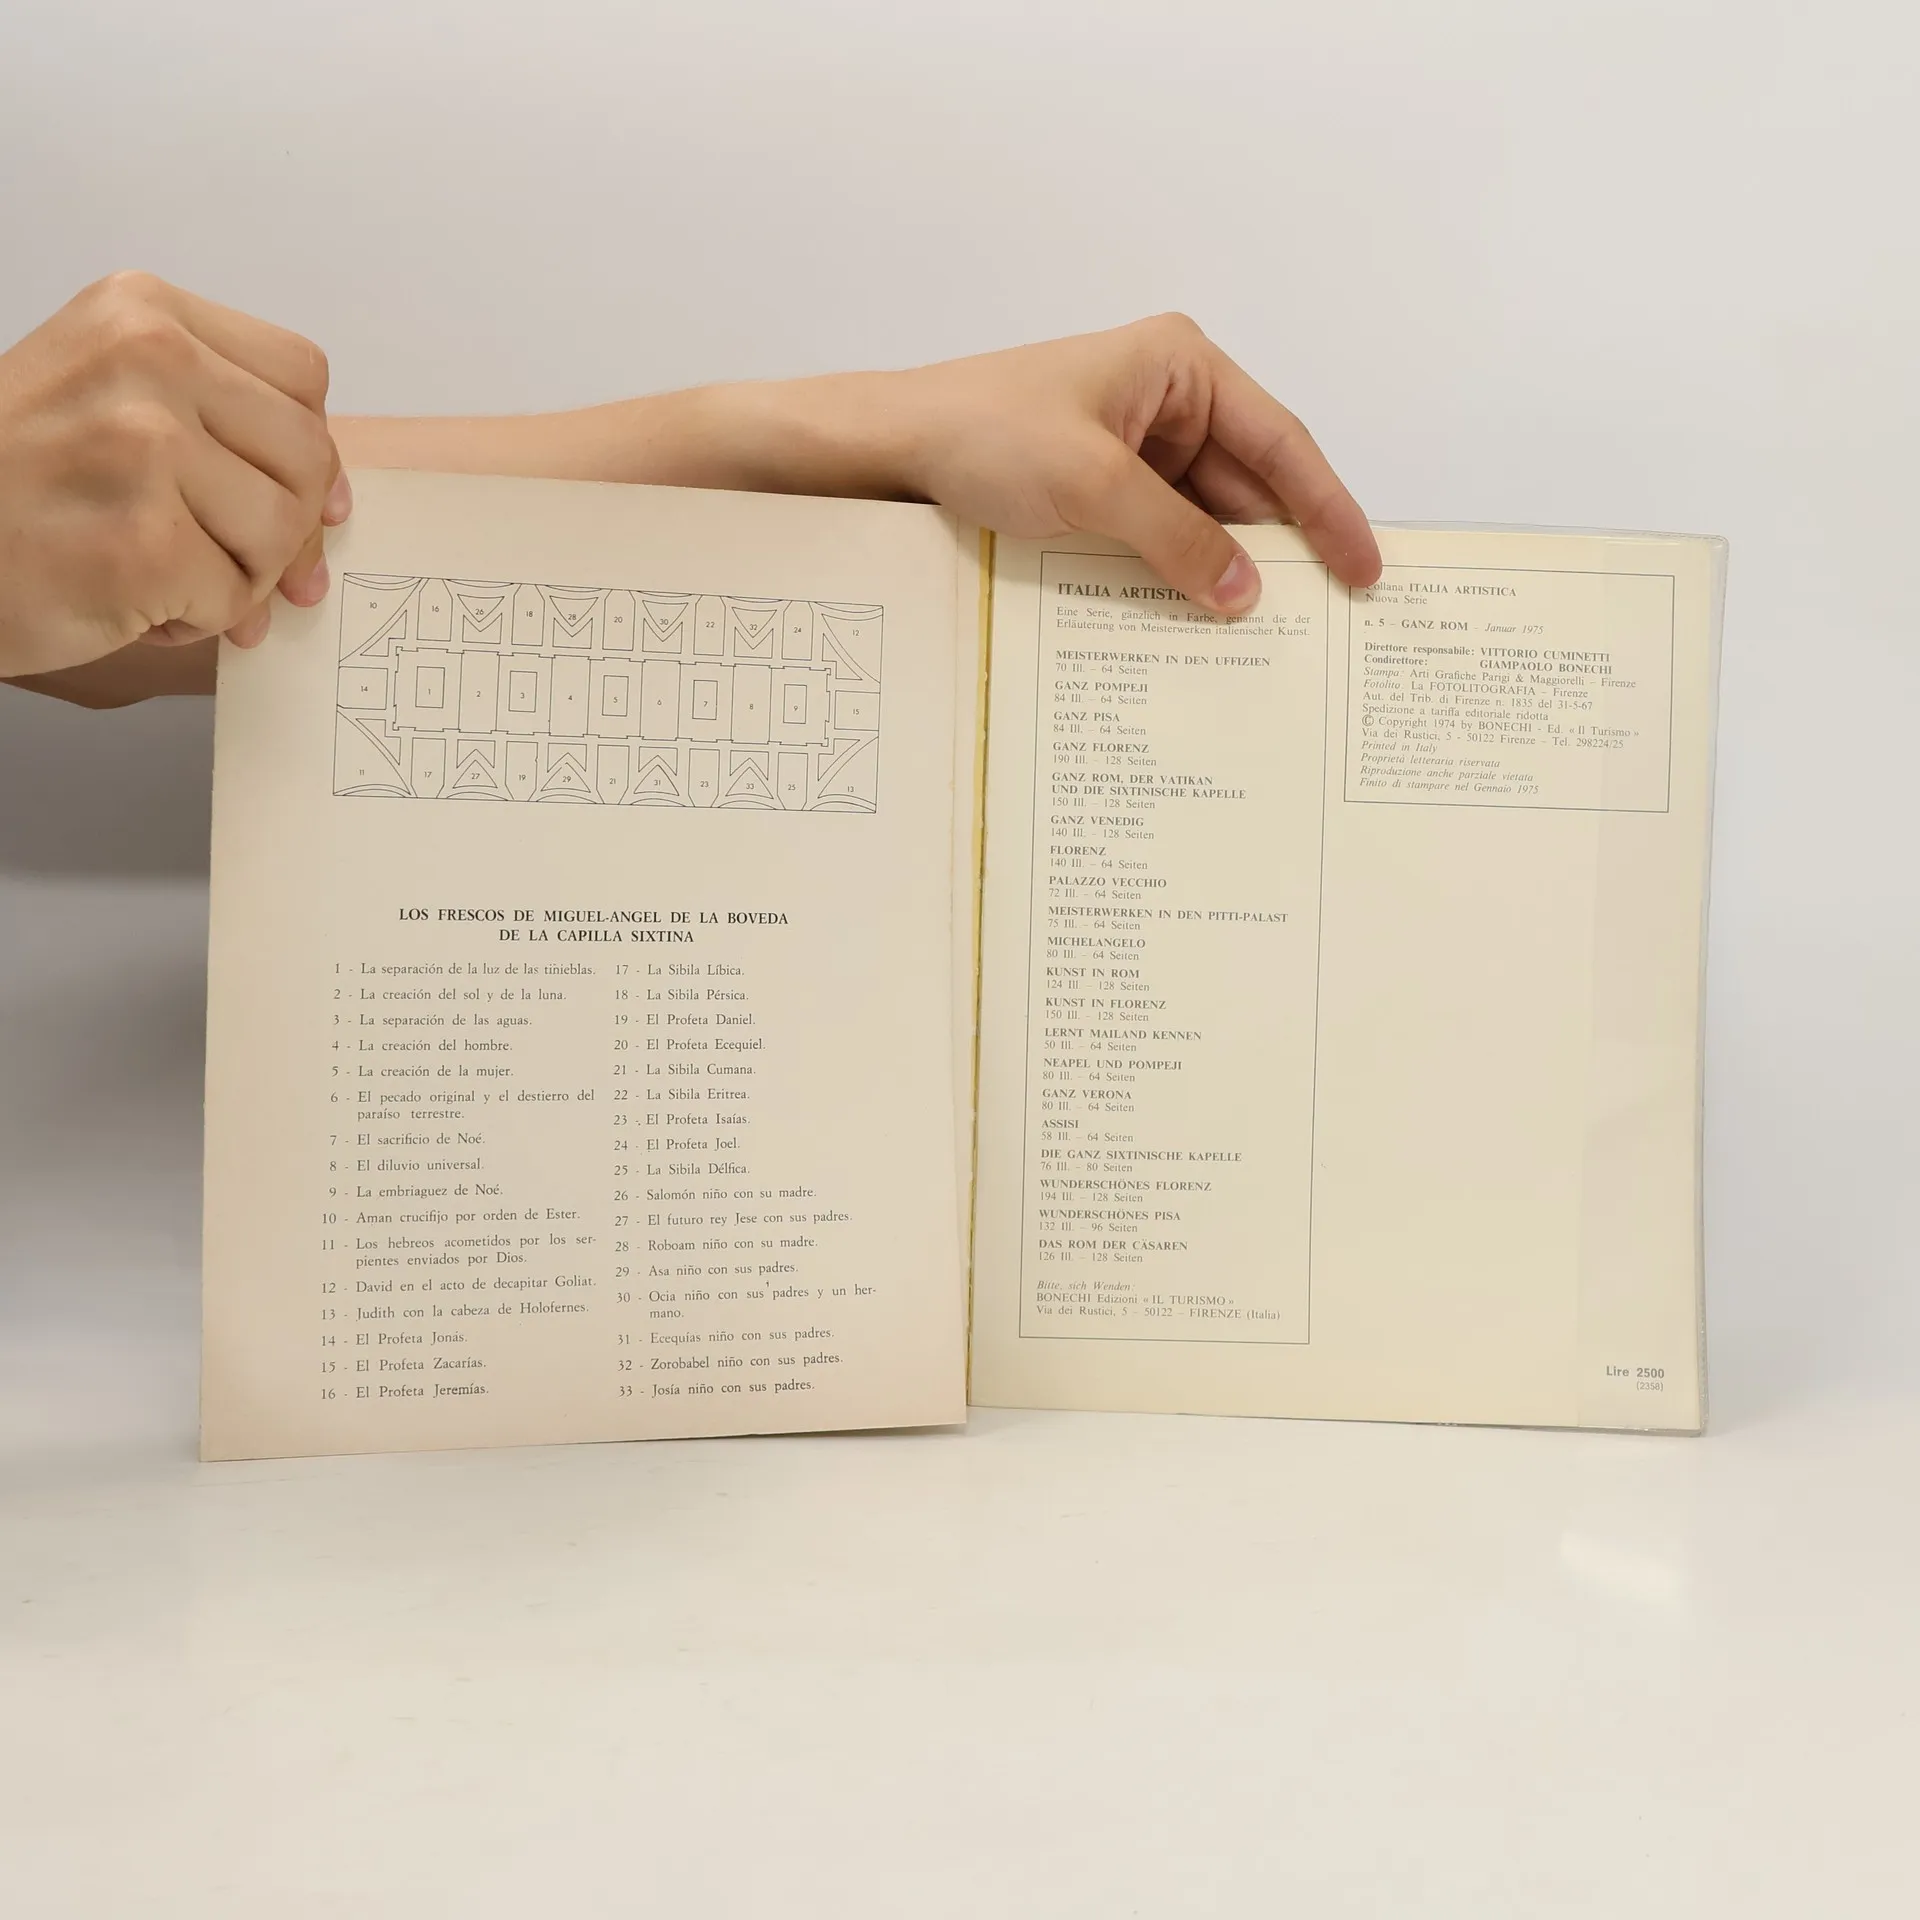 10
16
26
18
28
20
30
22
32
24
12
14
1
2
3
4
5
6
7
8
9
15
11
17
27
19
29
21
31
23
33
25
13
LOS FRESCOS DE MIGUEL-ANGEL DE LA BOVEDA
DE LA CAPILLA SIXTINA
1 - La separación de la luz de las tinieblas.
2 - La creación del sol y de la luna.
3 - La separación de las aguas.
4 - La creación del hombre.
5 - La creación de la mujer.
6 - El pecado original y el destierro del
paraíso terrestre.
7 - El sacrificio de Noé.
8 - El diluvio universal.
9 - La embriaguez de Noé.
10 - Aman crucifijo por orden de Ester.
11 - Los hebreos acometidos por los ser-
pientes enviados por Dios.
12 - David en el acto de decapitar Goliat.
13 - Judith con la cabeza de Holofernes.
14 - El Profeta Jonás.
15 - El Profeta Zacarías.
16 - El Profeta Jeremías.
17 - La Sibila Líbica.
18 - La Sibila Pérsica.
19 - El Profeta Daniel.
20 - El Profeta Ecequiel.
21 - La Sibila Cumana.
22 - La Sibila Eritrea.
23 - El Profeta Isaías.
24 - El Profeta Joel.
25 - La Sibila Délfica.
26 - Salomón niño con su madre.
27 - El futuro rey Jese con sus padres.
28 - Roboam niño con su madre.
29 - Asa niño con sus padres.
30 - Ocia niño con sus padres y un her-
mano.
31 - Ecequías niño con sus padres.
32 - Zorobabel niño con sus padres.
33 - Josía niño con sus padres.
ITALIA
Eine Serie, gänzlich in Farbe, genannt die der
Erläuterung von Meisterwerken italienischer Kunst.
MEISTERWERKEN IN DEN UFFIZIEN
70 Ill. – 64 Seiten
GANZ POMPEJI
84 Ill. – 64 Seiten
GANZ PISA
84 Ill. – 64 Seiten
GANZ FLORENZ
190 Ill. – 128 Seiten
GANZ ROM, DER VATIKAN
UND DIE SIXTINISCHE KAPELLE
150 Ill. – 128 Seiten
GANZ VENEDIG
140 Ill. – 128 Seiten
FLORENZ
140 Ill. – 64 Seiten
PALAZZO VECCHIO
72 Ill. – 64 Seiten
MEISTERWERKEN IN DEN PITTI-PALAST
75 Ill. – 64 Seiten
MICHELANGELO
80 Ill. – 64 Seiten
KUNST IN ROM
124 Ill – 128 Seiten
KUNST IN FLORENZ
150 Ill. – 128 Seiten
LERNT MAILAND KENNEN
50 Ill. – 64 Seiten
NEAPEL UND POMPEJI
80 Ill. – 64 Seiten
GANZ VERONA
80 Ill. – 64 Seiten
ASSISI
58 Ill. – 64 Seiten
DIE GANZ SIXTINISCHE KAPELLE
76 Ill. – 80 Seiten
WUNDERSCHÖNES FLORENZ
194 Ill. – 128 Seiten
WUNDERSCHÖNES PISA
132 Ill. – 96 Seiten
DAS ROM DER CÄSAREN
126 Ill. – 128 Seiten
Bitte, sich Wenden:
BONECHI Edizioni « IL TURISMO »
Via dei Rustici, 5 – 50122 – FIRENZE (Italia)
Collana ITALIA ARTISTICA
Nuova Serie
n. 5 – GANZ ROM – Januar 1975
Direttore responsabile: VITTORIO CUMINETTI
Condirettore: GIAMPAOLO BONECHI
Stampa: Arti Grafiche Parigi & Maggiorelli – Firenze
Fotolito: La FOTOLITOGRAFIA – Firenze
Aut. del Trib. di Firenze n. 1835 del 31-5-67
Spedizione a tariffa editoriale ridotta
© Copyright 1974 by BONECHI - Ed. « Il Turismo »
Via dei Rustici, 5 - 50122 Firenze – Tel. 298224/25
Printed in Italy
Proprietà letteraria riservata
Riproduzione anche parziale vietata
Finito di stampare nel Gennaio 1975
Lire 2500
(2358)